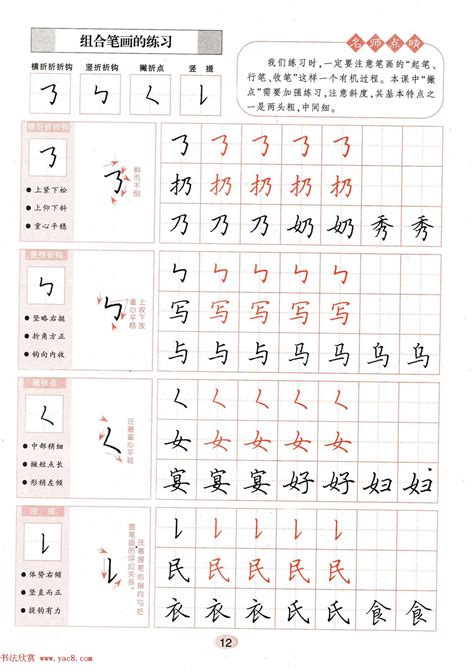 组合笔画的练习
横折折折钩 竖折折钩 撇折点 竖提
㇡ ㇉ ㇛ ㇙
名师点睛
我们练习时,一定要注意笔画的“起笔、
行笔、收笔”这样一个有机过程。本课中“撇
点”需要加强练习,注意斜度,其基本特点之
一是两头粗,中间细。
横折折折钩
㇡
● 上紧下松
● 上仰下斜
● 重心平稳
㇡
斜而不倒
㇡ ㇡ ㇡ ㇡ ㇡
扔 扔 扔 扔 扔
乃 乃 乃 奶 奶 秀 秀
竖折折钩
㇉
● 竖略右挺
● 折角方正
● 钩向内收
㇉
上收下放
重心平稳
㇉ ㇉ ㇉ ㇉ ㇉
写 写 写 写 写
与 与 与 马 马 乌 乌
撇折点
㇛
● 中部稍细
● 撇短点长
● 形稍左倾
㇛
注意重心平稳
㇛ ㇛ ㇛ ㇛ ㇛
女 女 女 女 女
宴 宴 宴 好 好 妇 妇
竖提
㇙
● 体势右倾
● 竖直而正
● 提钩有力
㇙
注意提笔的指向与后
面笔画的呼应关系。
㇙ ㇙ ㇙ ㇙ ㇙
民 民 民 民 民
衣 衣 衣 氏 氏 食 食
12
书法欣赏
www.yac8.com